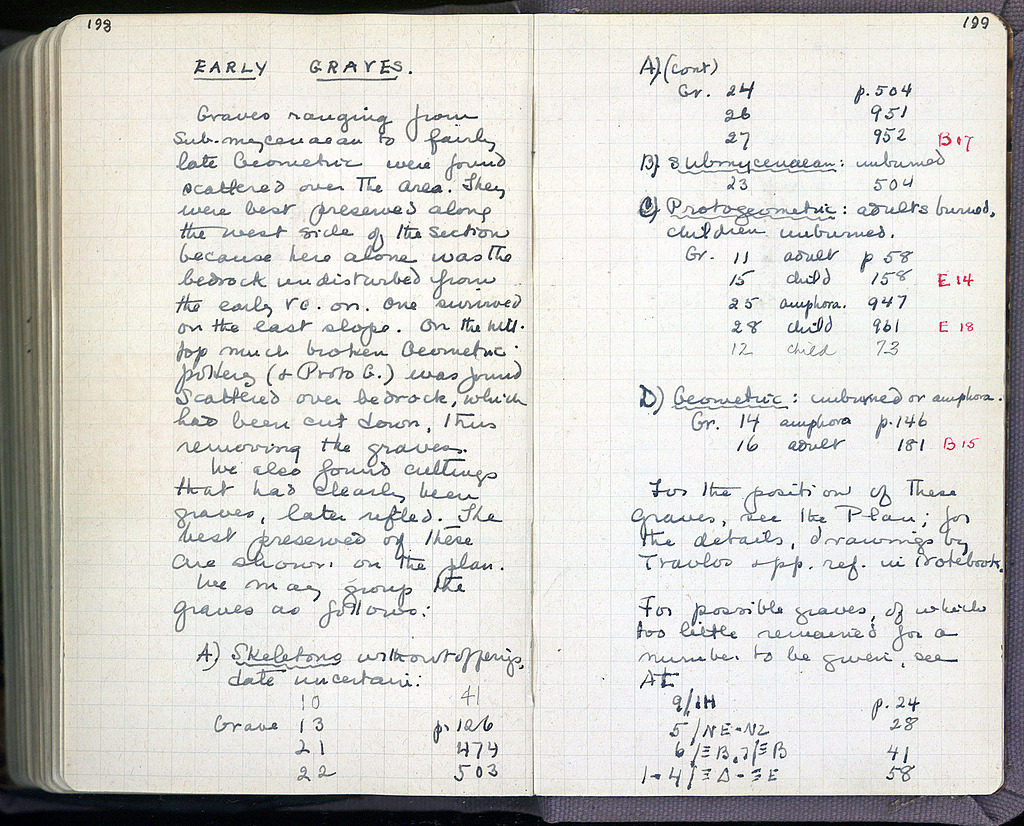 198
EARLY GRAVES.
Graves ranging from
Sub-mycenaean to fairly
late Geometric were found
scattered over the area. They
were best preserved along
the west side of the section
because here alone was the
bedrock undisturbed from
the early V c. on. One survived
on the east slope. On the hill-
top much broken Geometric
pottery (& Proto G.) was found
scattered over bedrock, which
had been cut down, thus
removing the graves.
We also found cuttings
that had clearly been
graves, later rifled. The
best preserved of these
are shown on the plan.
We may group the
graves as follows:
A) Skeletons without offerings,
date uncertain:
10 41
Grave 13 p. 126
21 474
22 503
199
A) (cont)
Gr. 24 p. 504
26 951
27 952 B 17
B) Submycenaean: unburned
23 504
C) Protogeometric: adults burned,
children unburned.
Gr. 11 adult p 58
15 child 158 E 14
25 amphora. 947
28 child 961 E 18
12 child 73
D) Geometric: unburned or amphora.
Gr. 14 amphora p. 146
16 adult 181 B 15
For the position of these
graves, see the Plan; for
the details, drawings by
Travlos & pp. ref. in notebook.
For possible graves, of which
too little remained for a
number to be given, see
At
9/ΙΗ p. 24
5/ΝΕ-ΝΖ 28
6/ΞΒ, 7/ΞΒ 41
1-4/ΞΔ-ΞΕ 58